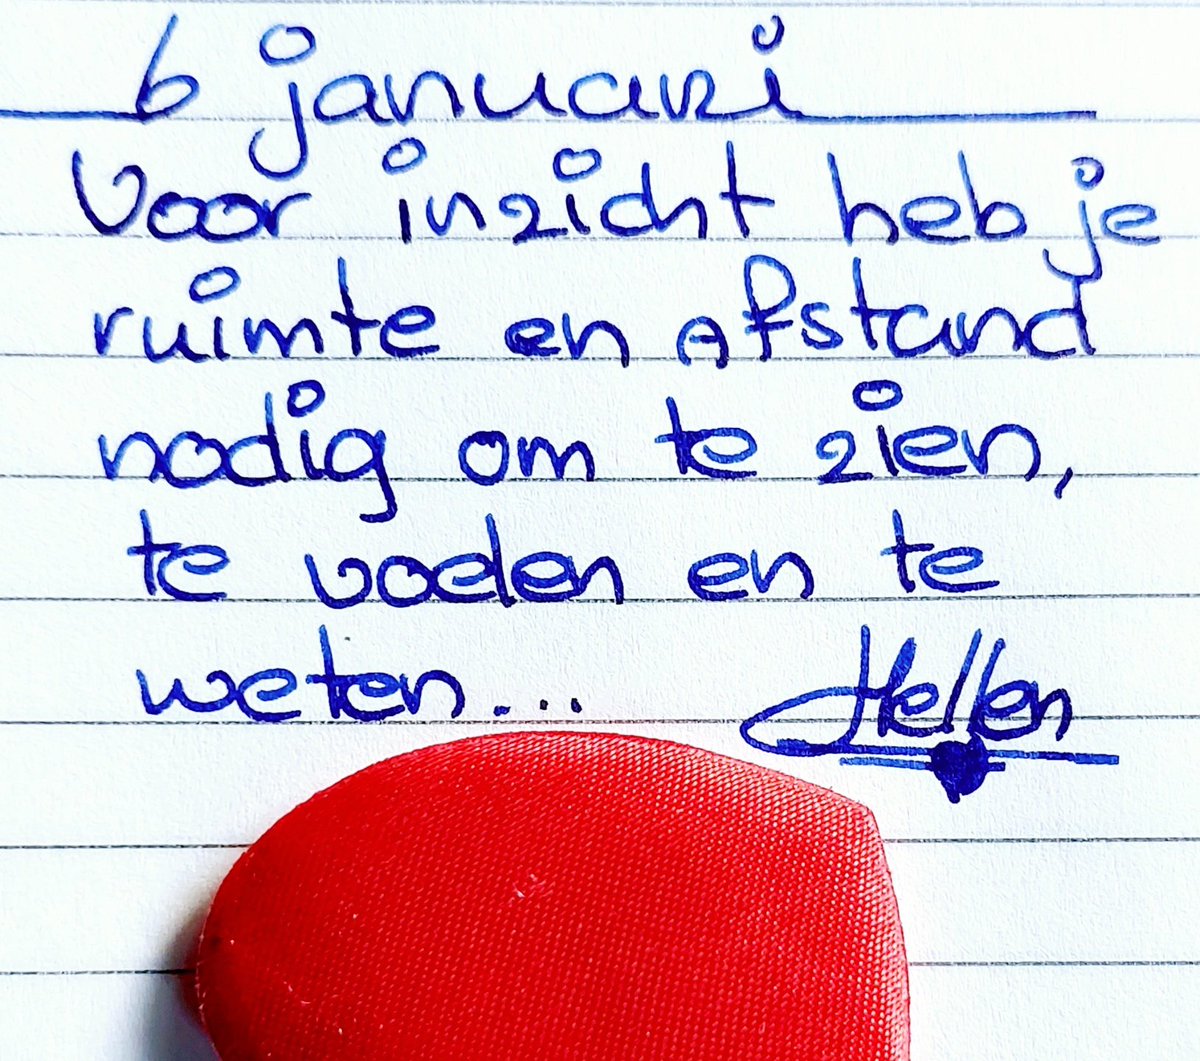 6 januari
Voor inzicht heb je
ruimte en Afstand
nodig om te zien,
te voelen en te
weten...
Hellen